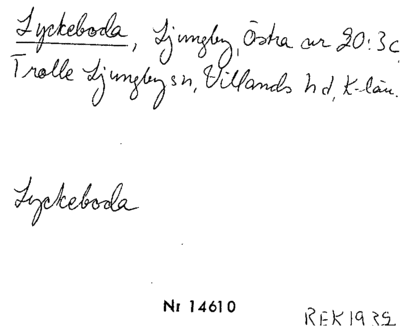 Lyckeboda, Ljungby, Östra nr 20:3c,
Trolle Ljungby sn, Villands hd, K-län.
Lyckeboda
Nr 14610
REK1932